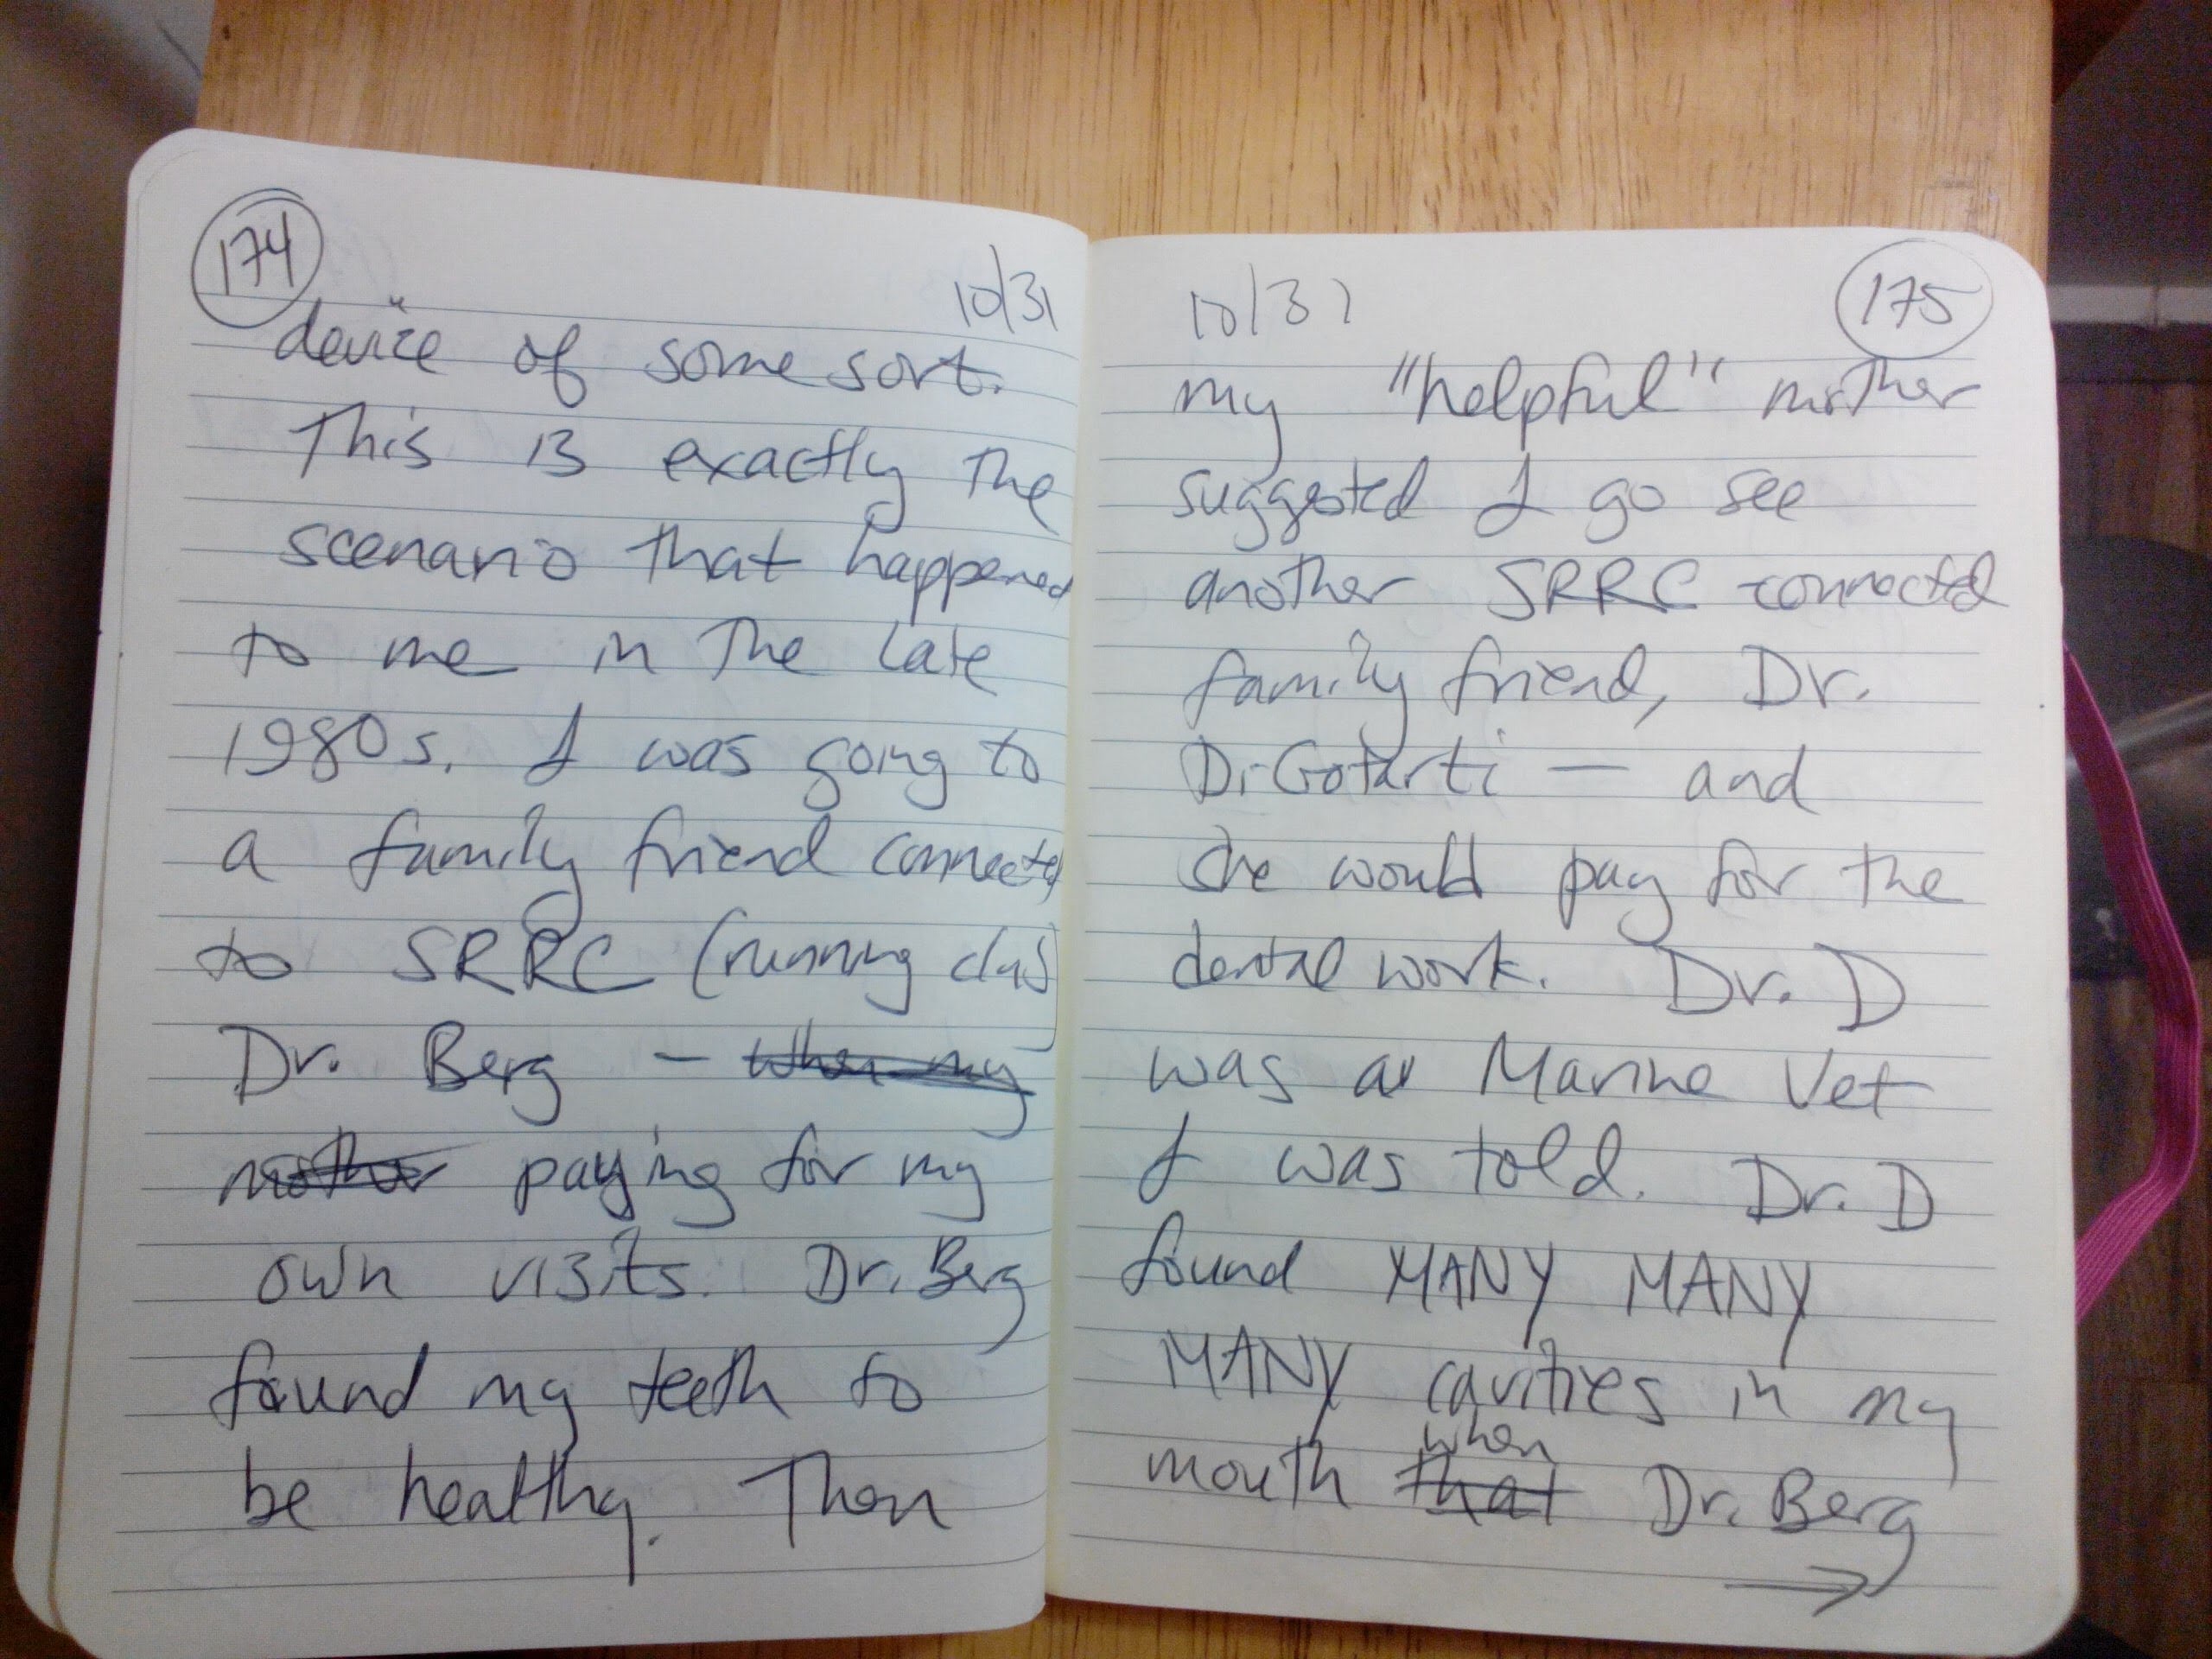 174
10/31
device of some sort.
This is exactly the
scenario that happened
to me in the late
1980s. I was going to
a family friend connected
to SRRC (running club)
Dr. Berg – when my
mother paying for my
own visits. Dr. Berg
found my teeth to
be healthy. Then
10/31
175
my "helpful" mother
suggested I go see
another SRRC connected
family friend, Dr.
DiGotarti — and
she would pay for the
dental work. Dr. D
was a Marine Vet
I was told. Dr. D
found MANY MANY
MANY cavities in my
when
mouth that Dr. Berg
→